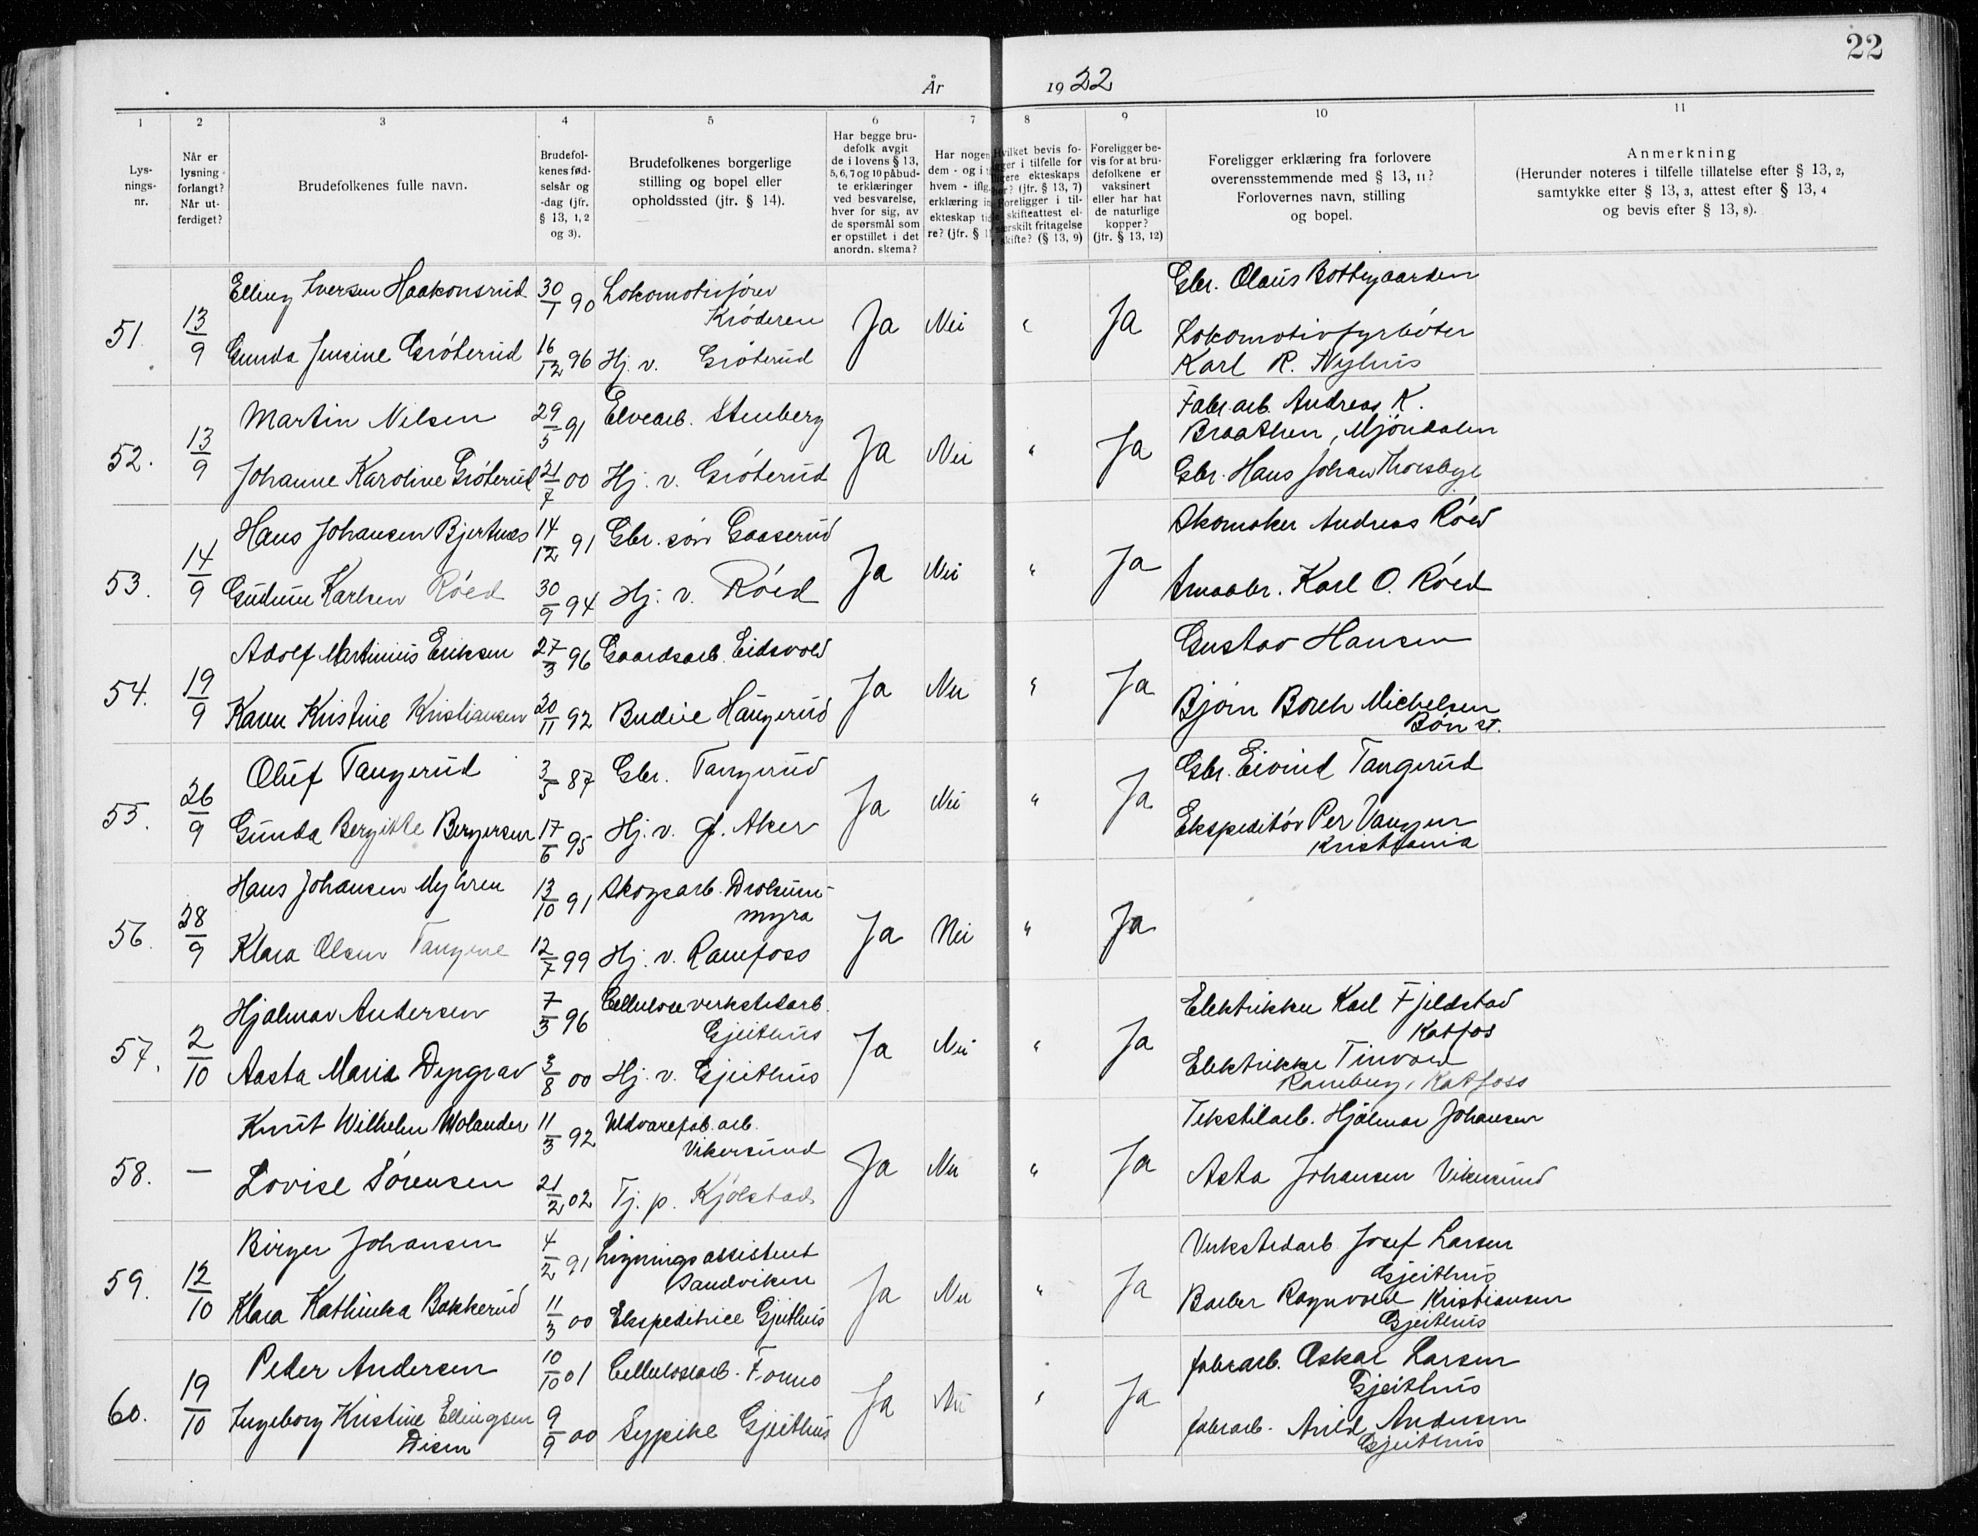 22
År 1922
1 2 3 4 5 6 7 8 9 10 11
Lys-
nings-
nr.
Når er
lysning
forlangt?
Når ut-
ferdiget?
Brudefolkenes fulle navn.
Brudefol-
kenes fød-
selsår og
-dag (jfr.
§ 13, 1, 2
og 3).
Brudefolkenes borgerlige
stilling og bopel eller
opholdssted (jfr. § 14).
Har begge bru-
defolk avgit
de i lovens § 13,
5, 6, 7 og 10 påbud-
te erklæringer
ved besvarelse,
hver for sig, av
de spørsmål som
er opstillet i det
anordn. skema?
Har nogen
dem - og i
hvem - iflg.
erklæring in
ekteskap tid
re? (jfr. §
Hvilket bevis fo-
gger i tilfelle for
gere ekteskaps
hør? (jfr. § 13, 7)
Foreligger i til-
skifteattest el-
særskilt fritagelse
skifte? (§ 13, 9)
Foreligger be-
vis for at bru-
defolkene er
vaksinert
eller har hat
de naturlige
kopper?
(jfr. § 13, 12)
Foreligger erklæring fra forlovere
overensstemmende med § 13, 11?
Forlovernes navn, stilling
og bopel.
Anmerkning
(Herunder noteres i tilfelle tillatelse efter § 13, 2,
samtykke efter § 13, 3, attest efter § 13, 4
og bevis efter § 13, 8).
51. 13/9 Elling Iversen Haakonsrud 30/1 90 Lokomotivfører
Krøderen
Gunda Jensine Grøterud 16/12 96 Hj. v. Grøterud
Ja Nei " Ja
Gbr. Olaus Bottegaarden
Lokomotivfyrbøter
Karl R. Nyhus
52. 13/9 Martin Nilsen 29/5 91 Elvearb. Stenberg
Johanne Karoline Grøterud 21/7 00 Hj. v. Grøterud
Ja Nei " Ja
Fabr.arb. Andreas K.
Braathen, Mjøndalen
Gbr. Hans Johan Thorsbye
53. 14/9 Hans Johansen Bjertnes 14/12 91 Gbr. søn Gaaserud
Gudrun Karlsen Røed 30/9 94 Hj. v. Røed
Ja Nei " Ja
Skomaker Andreas Røed
Smaabr. Karl O. Røed
54. 19/9 Adolf Martinius Eriksen 27/3 96 Gaardsarb. Eidsvold
Karen Kristine Kristiansen 20/11 92 Budeie Haugerud
Ja Nei " Ja
Gustav Hansen
Bjørn Borch Michelsen
Bøn st.
55. 26/9 Oluf Tangerud 3/5 87 Gbr. Tangerud
Gunda Bergitte Bergersen 17/6 95 Hj. v. Aker
Ja Nei " Ja
Gbr. Eivind Tangerud
Ekspeditør Per Vangen
Kristiania
56. 28/9 Hans Johansen Myhren 13/10 91 Skogsarb. Drolsum-
myra
Klara Olsen Tangene 12/7 99 Hj. v. Ramfoss
Ja Nei " Ja
57. 2/10 Hjalmar Andersen 7/3 96 Celluloseverkstedarb.
Gjeithus
Aasta Maria Dyrgrav 3/8 00 Hj. v. Gjeithus
Ja Nei " Ja
Elektriker Karl Fjeldstad
Katfos
Elektriker
Ramberg, Katfoss
58. — Knut Wilhelm Wolander 11/3 92 Uldvarefab. arb.
Vikersund
Lovise Sørensen 21/2 02 Tj. p. Kjølstad
Ja Nei " Ja
Tekstilarb. Hjalmar Johansen
Asta Johansen Vikersund
59. 12/10 Birger Johansen 4/2 91 Ligningsassistent
Sandviken
Klara Kathinka Bakkerud 11/3 00 Ekspeditrice Gjeithus
Ja Nei " Ja
Verkstedarb. Josef Larsen
Gjeithus
Barber Ragnvald Kristiansen
Gjeithus
60. 19/10 Peder Andersen 10/10 01 Cellulosearb.
Ingeborg Kristine Ellingsen 9/9 00 Sypike Gjeithus
Disen
Ja Nei " Ja
fabrarb. Oskar Larsen
Gjeithus
fabrarb. Arild Andersen
Gjeithus